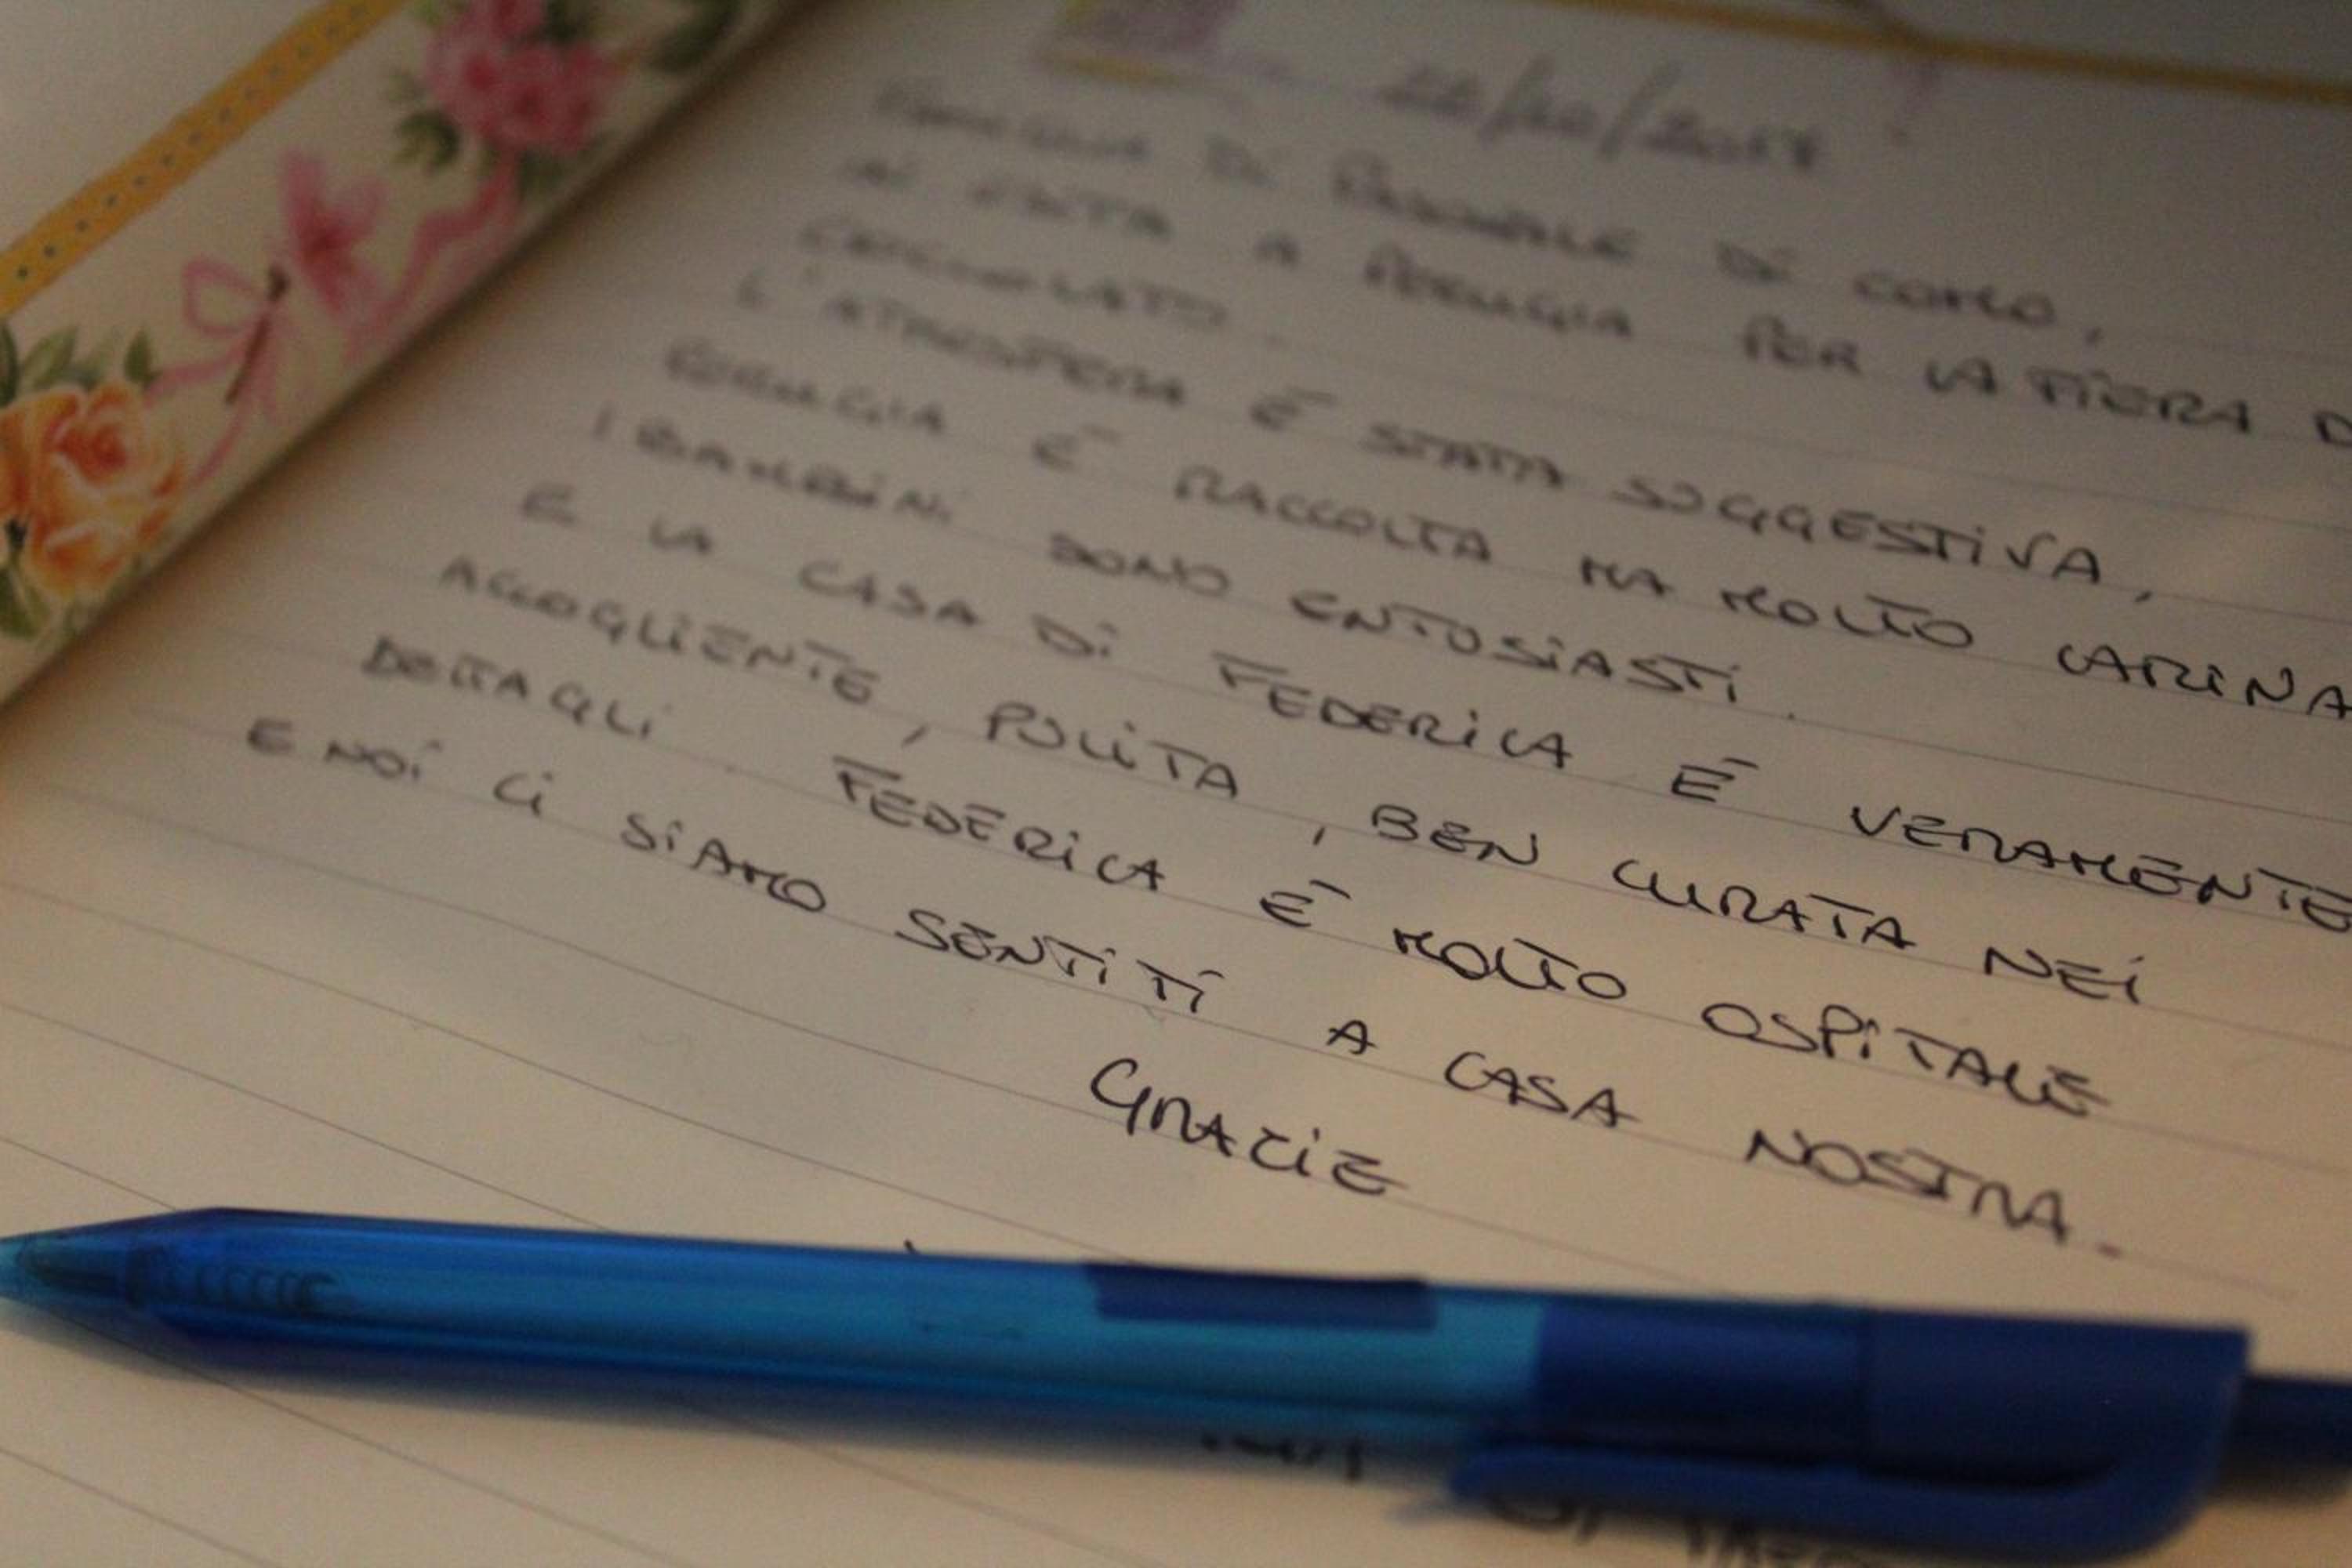 DI COMO,
A PERUGIA PER LA FIERA D
L'ATMOSFERA È STATA SUGGESTIVA,
PERUGIA È RACCOLTA MA MOLTO CARINA
I BAMBINI SONO ENTUSIASTI.
E LA CASA DI FEDERICA È VERAMENTE
ACCOGLIENTE, PULITA, BEN CURATA NEI
DETTAGLI. FEDERICA È MOLTO OSPITALE
E NOI CI SIAMO SENTITI A CASA NOSTRA.
GRAZIE